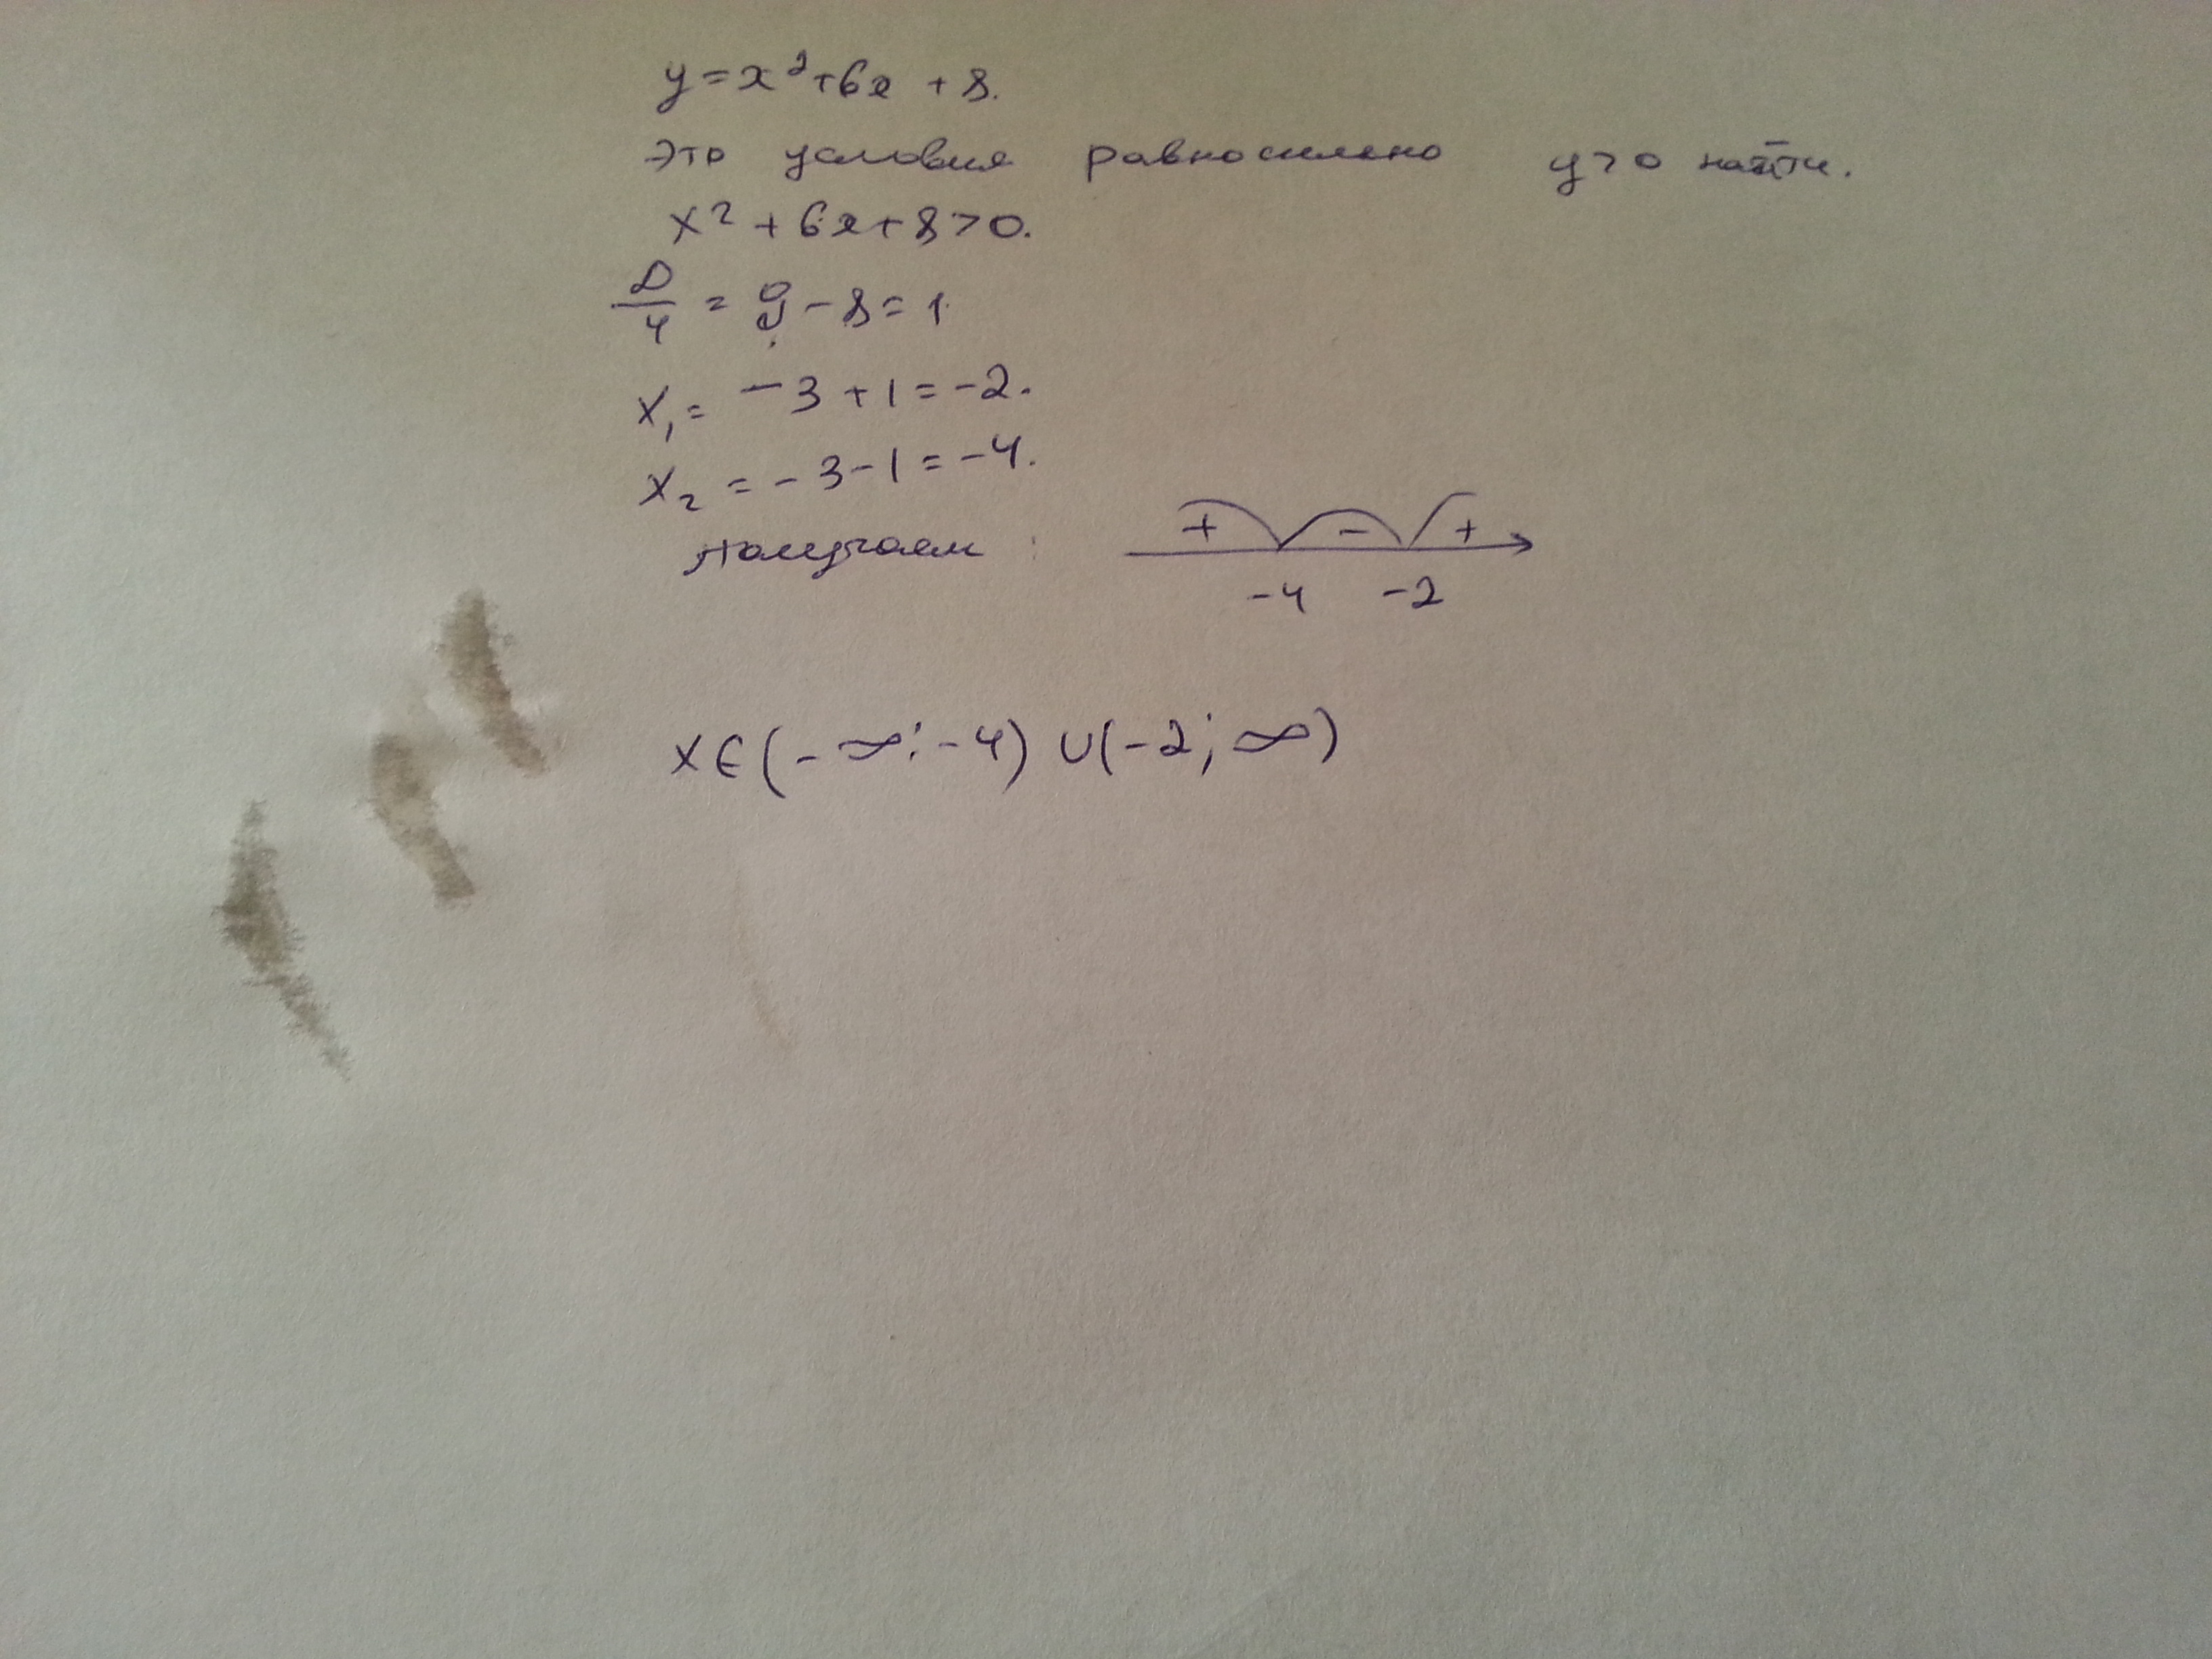 y=x²+6x+8.
Это условия равносильно y>0 найти.
x²+6x+8>0.
D/4=9-8=1.
x₁=-3+1=-2.
x₂=-3-1=-4.
Получаем: + - +
-4 -2
x∈(-∞;-4)∪(-2;∞)